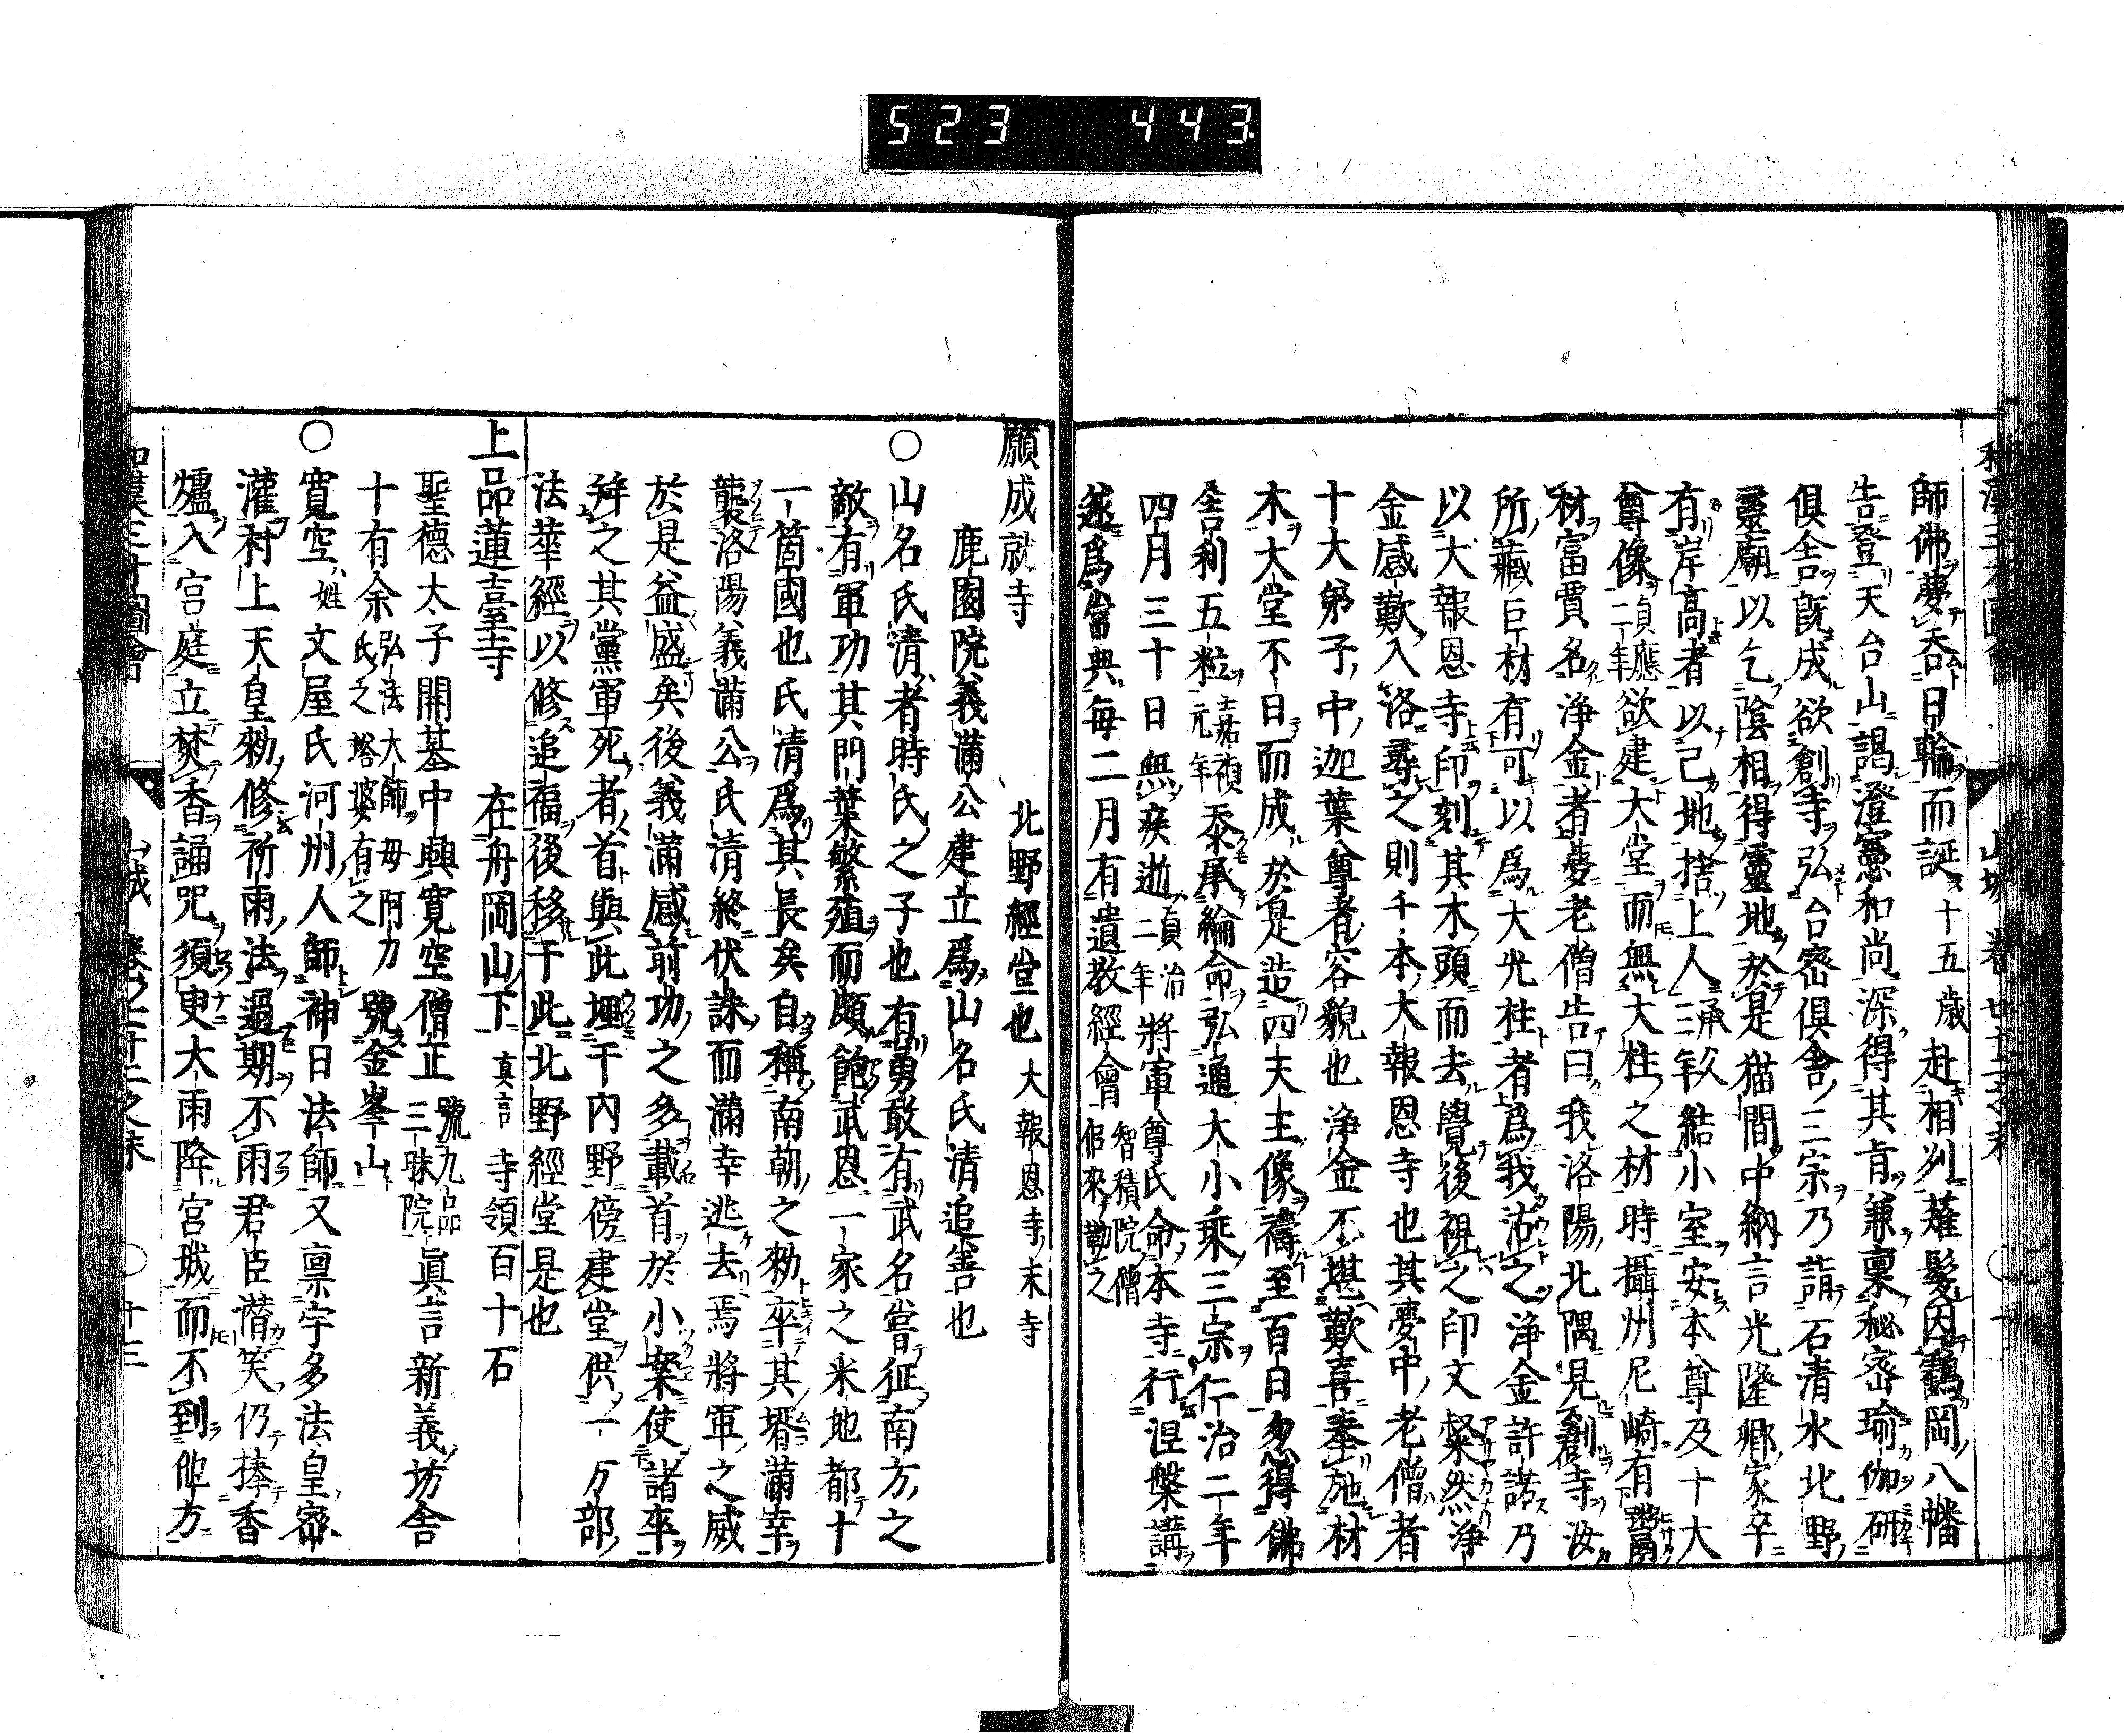 523 443
師佛夢呑日輪而誕十五歳赴相刕薙髮因鶴岡八幡
告登天台山謁澄憲和尚深得其旨兼禀秘密瑜伽研
倶舎既成欲創寺弘台密倶舎三宗乃詣石清水北野
靈廟以乞陰相得靈地於是猫間中納言光隆卿家卒
有岸高者以己地捨上人承久三年結小室安本尊及十大
尊像貞應二年欲建大堂而無大柱之材時攝州尼崎有鬻
材富賈名浄金者夢老僧告曰我洛陽北隅見創寺汝
所藏巨材有可以爲大光柱者爲我沽之浄金許諾乃
以大報恩寺印刻其木頭而去覺後視之印文粲然浄
金感歎入洛尋之則千本大報恩寺也其夢中老僧者
十大弟子中迦葉尊者容貌也浄金不堪歎喜奉施材
木大堂不日而成於是造四天王像禱至百日忽得佛
舎利五粒嘉禎元年忝承綸命弘通大小乘三宗仁治二年
四月三十日無疾逝貞治二年將軍尊氏命本寺行涅槃講
遂爲常典毎二月有遺教經會智積院僧侶來勤之
願成就寺 北野經堂也 大報恩寺末寺
鹿園院義滿公建立爲山名氏清追善也
○山名氏清者時氏之子也有勇敢有武名嘗征南方之
敵有軍功其門葉繁殖而頗飽武恩一家之釆地都十
一箇國也氏清爲其長矣自稱南朝之勅卒其壻滿幸
襲洛陽義滿公氏清終伏誅而滿幸逃去焉將軍之威
於是益盛矣後義滿感前功之多載首於小案使諸卒
拜之其黨軍死者首與此埋于内野傍建堂供一万部
法華經以修追福後移于此北野經堂是也
上品蓮臺寺 在舟岡山下 真言 寺領百十石
聖德太子開基中興寛空僧正號九品三昧院眞言新義坊舎
十有余弘法大師母阿刀氏之塔婆有之號金峯山
○寛空姓文屋氏河州人師神日法師又禀宇多法皇密
灌村上天皇勅修祈雨法過期不雨君臣潜笑仍捧香
爐入宮庭立焚香誦咒須臾大雨降宮城而不到他方